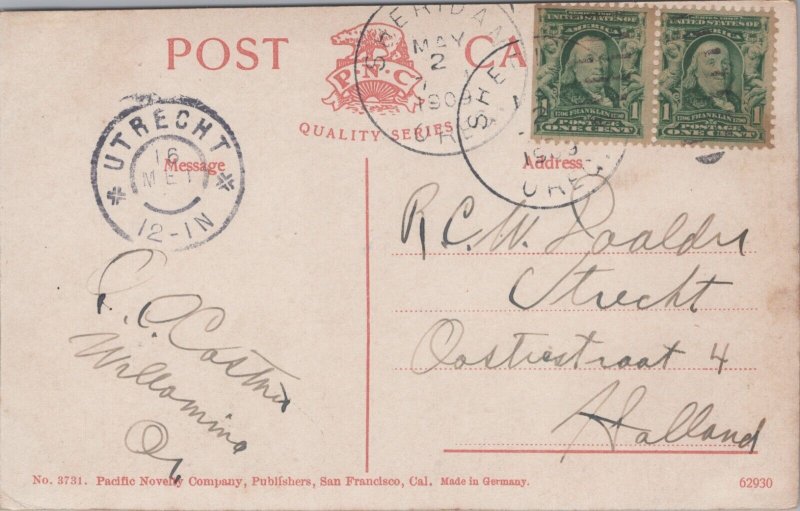 POST CA
P.N.C
QUALITY SERIES
SHERIDAN
MAY
2
1909
ORE
SHE
1909
OREG
SERIES 1902
UNITED STATES OF
AMERICA
1 FRANKLIN 1
POSTAGE
ONE CENT
SERIES 1902
UNITED STATES OF
AMERICA
1 FRANKLIN 1
POSTAGE
ONE CENT
UTRECHT
16
MEI
12-1N
Message
Address
R.C.W.
Utrecht
4
Holland
Willamina
Or
No. 3731. Pacific Novelty Company, Publishers, San Francisco, Cal. Made in Germany.
62930